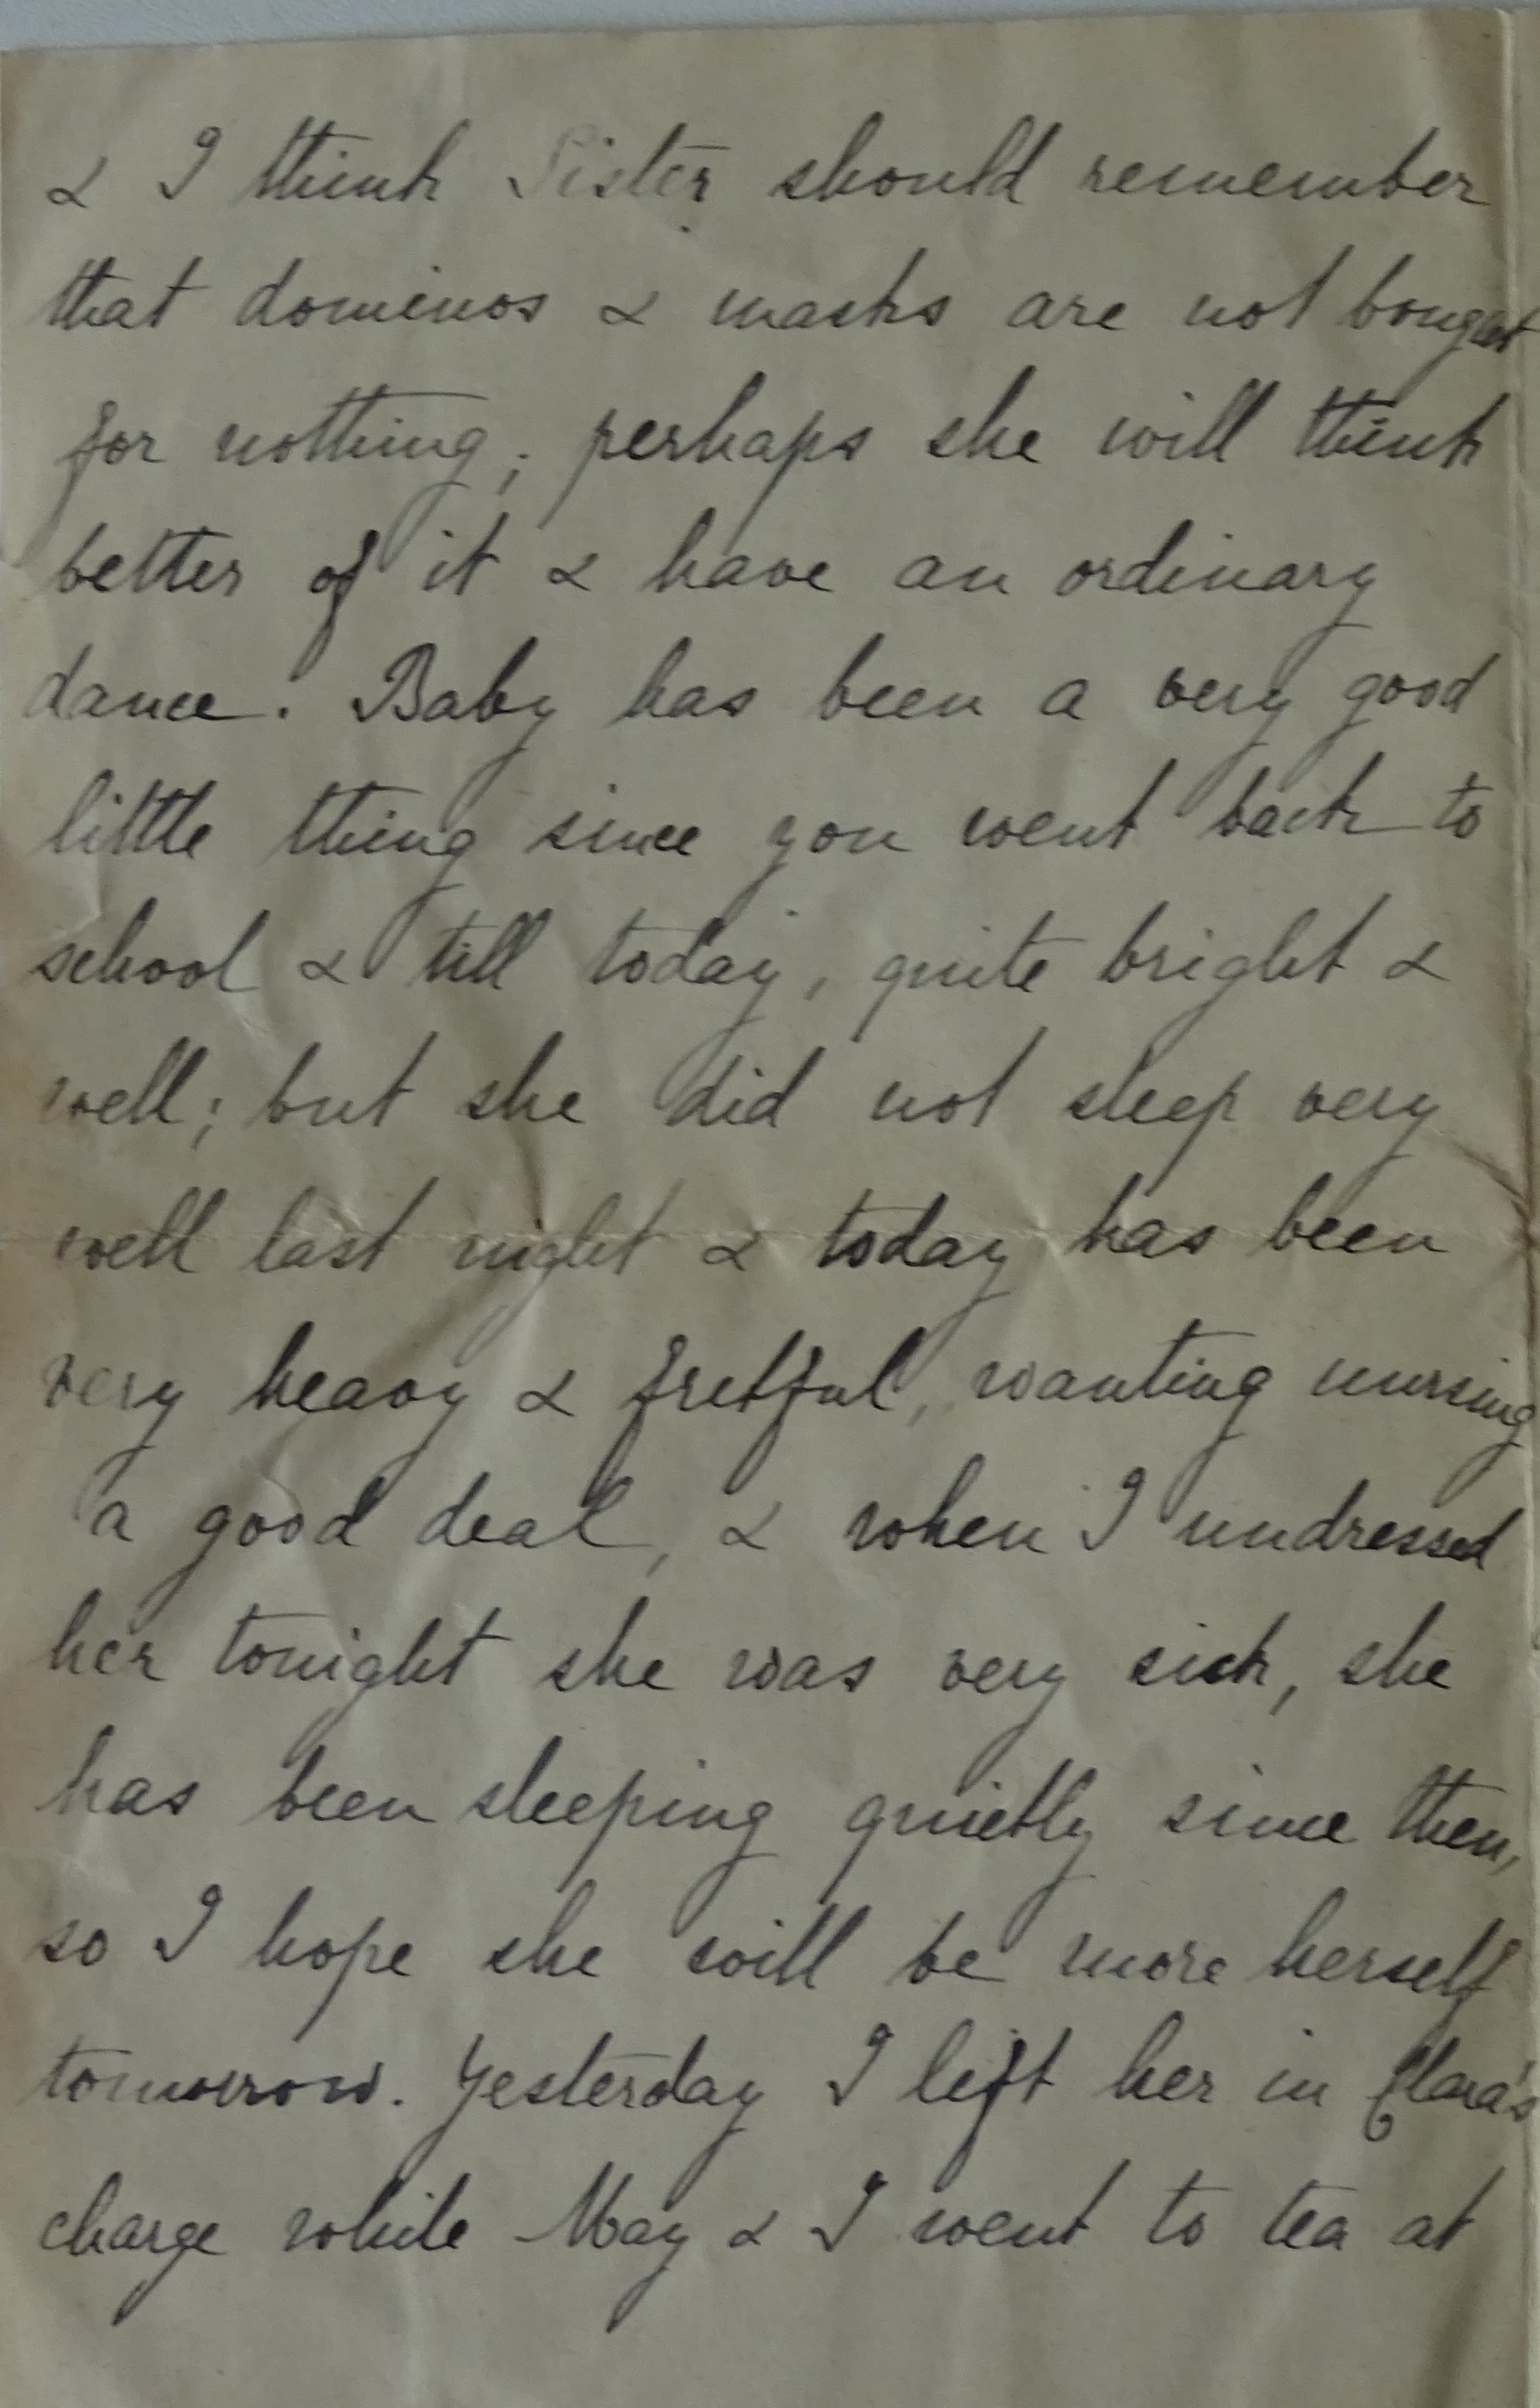 & I think Sister should remember
that dominos & masks are not bought
for nothing; perhaps she will think
better of it & have an ordinary
dance. Baby has been a very good
little thing since you went back to
school & till today, quite bright &
well; but she did not sleep very
well last night & today has been
very heavy & fretful, wanting nursing
a good deal, & when I undressed
her tonight she was very sick, she
has been sleeping quietly since then,
so I hope she will be more herself
tomorrow. Yesterday I left her in Clara's
charge while May & I went to tea at